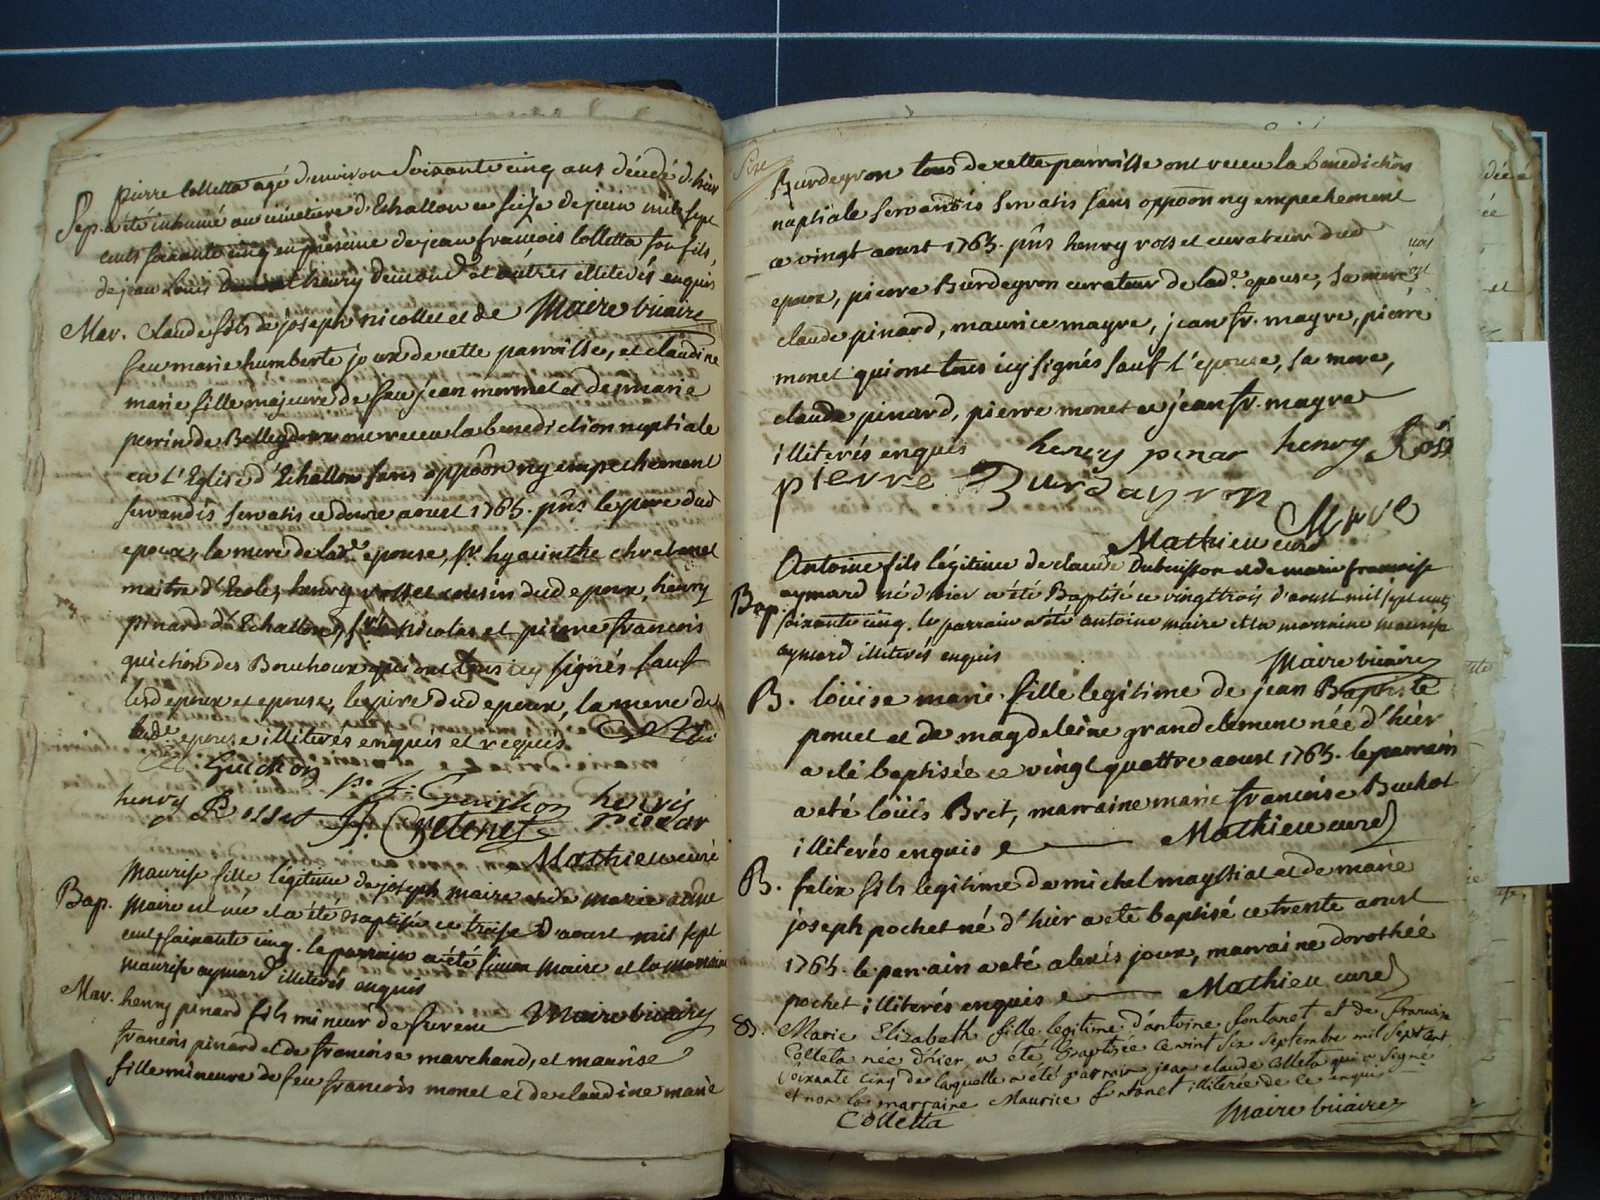 pierre Colletta agé d'environ Soixante cinq ans décédé d'hier
Sep. a été inhumé au cimetiere d'Echallon ce seize de juin mil sept
cents soixante cinq en présence de jean françois Colletta son fils,
de jean louis henry et autres illiterés enquis
Maire vicaire
Mar. Claude fils de joseph nicollet et de
feu marie humberte joux de cette parroisse, et claudine
marie fille majeure de feu jean mormet et de marie
perrin de Bellegdoux ont receu la benediction nuptiale
en l'Eglise d'Echallon sans oppôon ny empechement
servandis servatis ce douze aoust 1765. pñs le pere dud
epoux, la mere de lad.e epouse, sr. hyacinthe chretenet
maitre d'Ecole, henry rosset cousin dud epoux, henry
pinard d'Echallon, nicolas et pierre françois
guichon des Bouchoux qui ont tous icy signés sauf
lesd epoux et epouse, le pere dud epoux, la mere de
lade epouse illiterés enquis et requis.
Guichon
p. f. Guichon henris
henry Rosset h. Cretenet pinar
Mathieu curé
Maurise fille légitime de joseph maire et de marie aimé
Bap. maire est née et a été Baptisée ce treise d'aoust mil sept
cent soixante cinq. le parrain a été simon maire et la marraine
maurise aymard illiterés enquis
Maire vicaire
Mar. henry pinard fils mineur de feu rene
francois pinard et de francoise marchand, et maurise
fille mineure de feu francois monet et de claudine marie
Burdeyron tous de cette parroisse ont receu la benediction
nuptiale servandis servatis sans oppôon ny empechement
ce vingt aoust 1765. pñs henry rosset curateur dud
epoux, pierre Burdeyron curateur de lad.e epouse, sa mere
claude pinard, maurice mayre, jean fr. mayre, pierre
monet qui ont tous icy signés sauf l'epouse, sa mere,
claude pinard, pierre monet et jean fr. mayre
illiterés enquis henry penar henry Rosset
pierre Burdayron
Mathieu curé
Antoine fils légitime de claude Dubuisson et de marie francoise
Bap. aymard né d'hier a été Baptisé ce vingt trois d'aoust mil sept cents
soixante cinq. le parrain a été antoine maire et la marraine maurise
aymard illiterés enquis
Maire vicaire
B. loüise marie fille legitime de jean Baptiste
poncet et de magdeleine grandclement née d'hier
a été baptisée ce vingt quattre aoust 1765. le parrain
a eté loüis Bret, marraine marie francoise Buchot
illiterés enquis Mathieu curé
B. felix fils legitime de michel mayssiat et de marie
joseph pochet né d'hier a eté baptisé ce trente aoust
1765. le parrain a eté alexis joux, marraine dorothée
pochet illiterés enquis Mathieu curé
B. Marie Elizabeth fille legitime d'antoine fontanet et de francoise
Colleta née d'hier a été Baptisée ce vint six septembre mil sept cent
soixante cinq de laquelle a été parrain jean claude Colleta qui a signé
et non la marraine Maurice fontanet illiterée de ce enquise
Colletta Maire vicaire